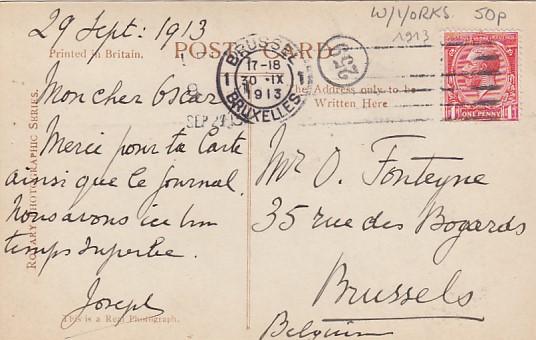 29 Sept: 1913
W/YORKS. 50p
1913
Printed in Britain.
POST CARD
The Address only to be
Written Here
BRUSSEL
17-18
1 30 IX 1
1913
BRUXELLES
SEP 29 13
ONE PENNY
ROTARY PHOTOGRAPHIC SERIES.
Mon cher Oscar
Merci pour ta carte
ainsi que le journal.
Nous avons ici un
temps superbe.
Joseph
This is a Real Photograph.
Mr O. Fonteyne
35 rue des Bogards
Brussels
Belgium